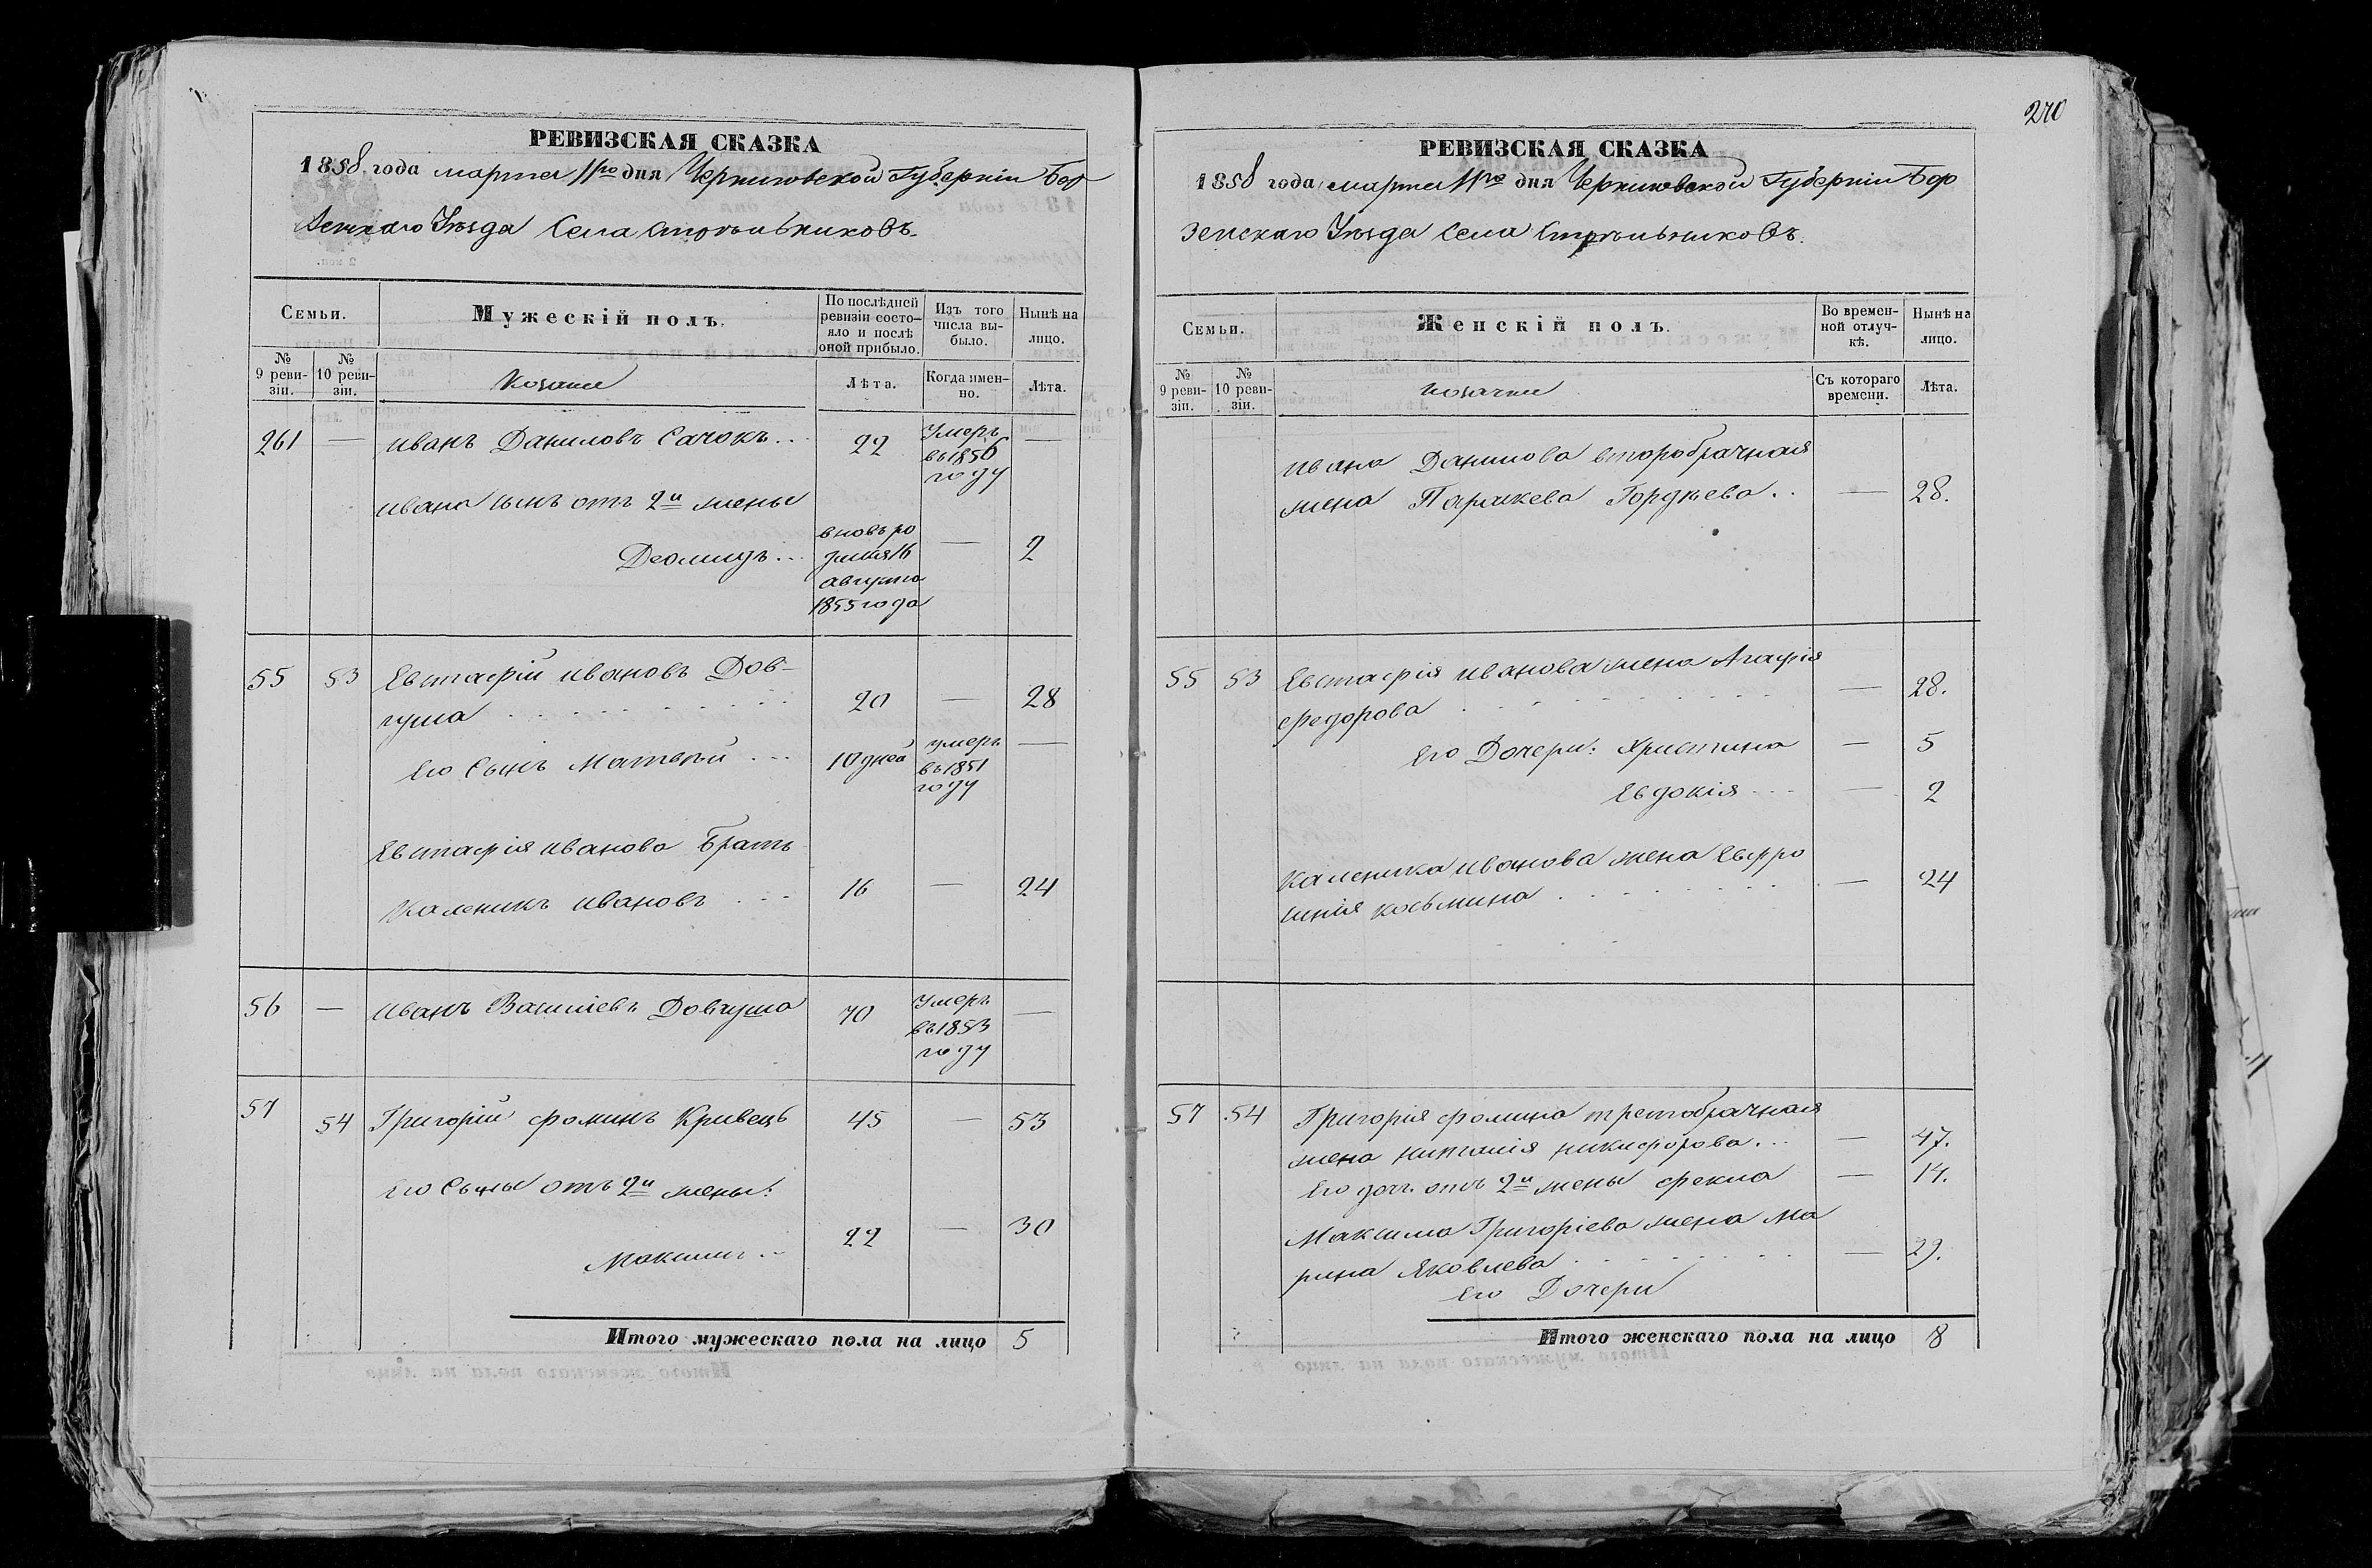 270
РЕВИЗСКАЯ СКАЗКА
1858 года марта 11го дня Черниговской Губерніи Бор
зенскаго Уѣзда Села Стрѣльниковъ.
Семьи.
Мужескій полъ.
По послѣдней ревизіи состояло и послѣ оной прибыло.
Изъ того числа выбыло.
Нынѣ на лицо.
№ 9 ревизіи.
№ 10 ревизіи.
Козаки
Лѣта.
Когда именно.
Лѣта.
261 — Иванъ Даниловъ Сачокъ .. 22 Умеръ въ 1856 году —
Ивана сынъ отъ 2й жены
Деомидъ ... вновь ро 16 августа 1855 года — 2
55 53 Евстафій Ивановъ Дов-
гуша 20 — 28
Его Сынъ Матвѣй ... 10 дней умеръ въ 1851 году —
Евстафія Иванова Братъ
Каленикъ Ивановъ ... 16 — 24
56 — Иванъ Василіевъ Довгуша 70 Умеръ въ 1853 году —
57 54 Григорій Фоминъ Кривецъ 45 — 53
Его Сыны отъ 2й жены:
Максимъ .. 22 — 30
Итого мужескаго пола на лицо 5
РЕВИЗСКАЯ СКАЗКА
1858 года марта 11го дня Черниговской Губерніи Бор
зенскаго Уѣзда Села Стрѣльниковъ.
Семьи.
Женскій полъ.
Во временной отлучкѣ.
Нынѣ на лицо.
№ 9 ревизіи.
№ 10 ревизіи.
Козачки
Съ котораго времени.
Лѣта.
Ивана Данилова второбрачная
жена Параскева Гордѣева .. — 28.
55 53 Евстафія Иванова жена Агафія
Федорова — 28.
Его Дочери: Христина — 5
Евдокія ... — 2
Каленика Иванова жена Евфро
синія Косьмина — 24
57 54 Григорія Фомина третобрачная
жена Наталія Никифорова ... — 47.
Его доч. отъ 2й жены Фекла — 14.
Максима Григоріева жена Ма
рина Яковлева — 29.
Его Дочери
Итого женскаго пола на лицо 8